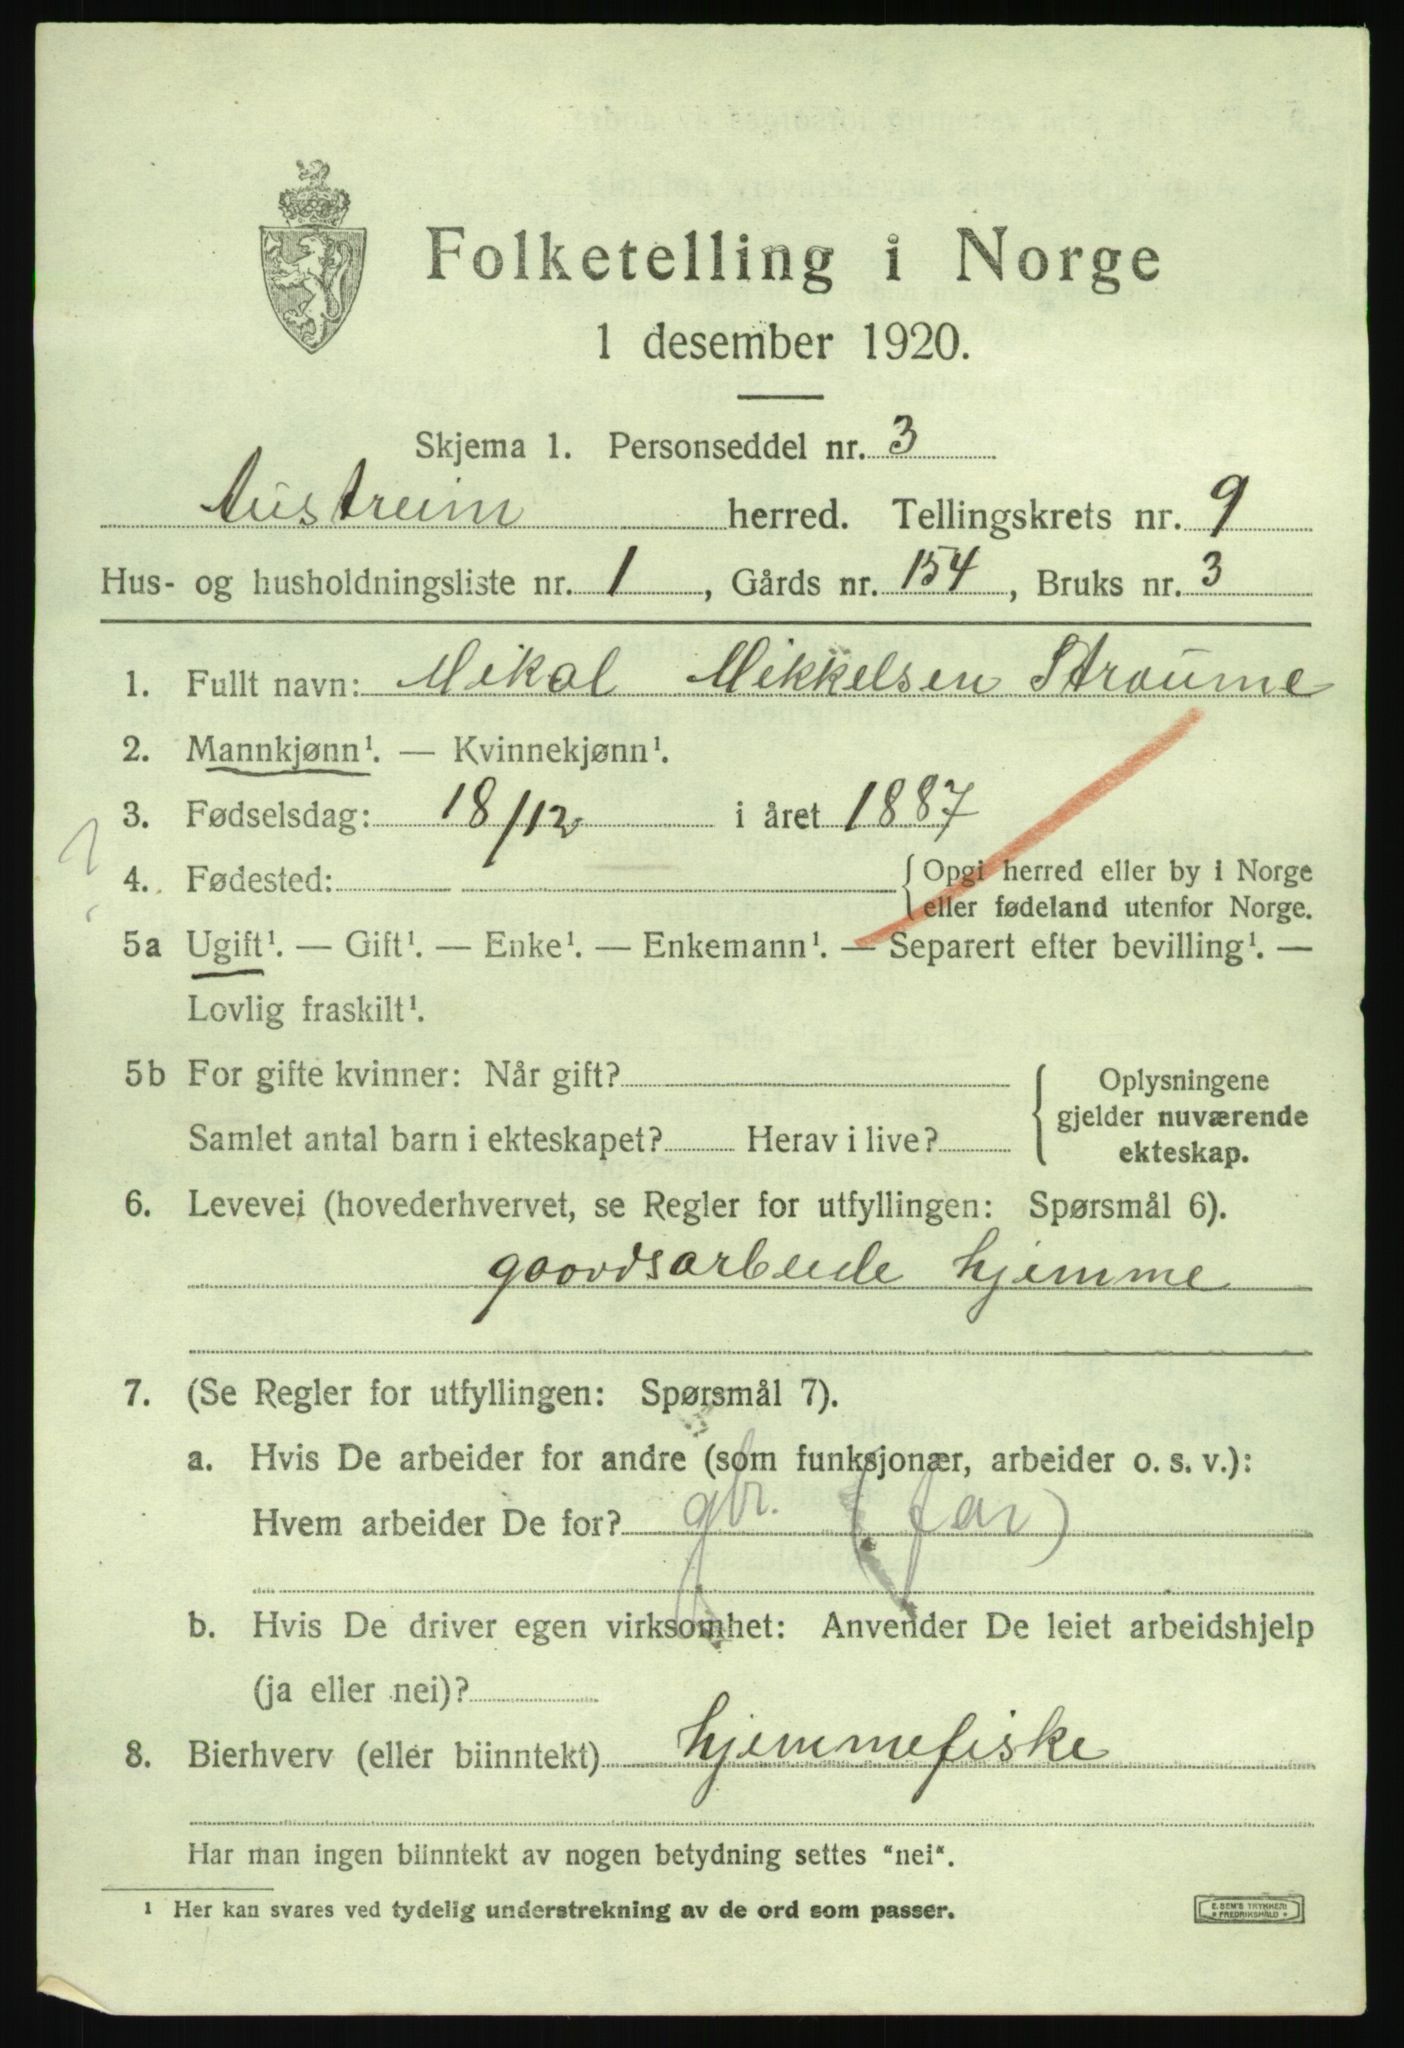 Folketelling i Norge
1 desember 1920.
Skjema 1. Personseddel nr. 3
Austreim herred. Tellingskrets nr. 9
Hus- og husholdningsliste nr. 1, Gårds nr. 154, Bruks nr. 3
1. Fullt navn: Mikal Mikkelsen Straume
2. Mannkjønn¹. — Kvinnekjønn¹.
3. Fødselsdag: 18/12 i året 1887
?
4. Fødested: { Opgi herred eller by i Norge
eller fødeland utenfor Norge.
5a Ugift¹. — Gift¹. — Enke¹. — Enkemann¹. — Separert efter bevilling¹. —
Lovlig fraskilt¹.
5b For gifte kvinner: Når gift? { Oplysningene
gjelder nuværende
Samlet antal barn i ekteskapet? Herav i live?
ekteskap.
6. Levevei (hovederhvervet, se Regler for utfyllingen: Spørsmål 6).
gaardsarbeide hjemme
7. (Se Regler for utfyllingen: Spørsmål 7).
a. Hvis De arbeider for andre (som funksjonær, arbeider o. s. v.):
Hvem arbeider De for? gbr. (far)
b. Hvis De driver egen virksomhet: Anvender De leiet arbeidshjelp
(ja eller nei)?
8. Bierhverv (eller biinntekt) hjemmefiske
Har man ingen biinntekt av nogen betydning settes "nei".
¹ Her kan svares ved tydelig understrekning av de ord som passer.
E. SEM'S TRYKKERI
* FREDRIKSHALD *